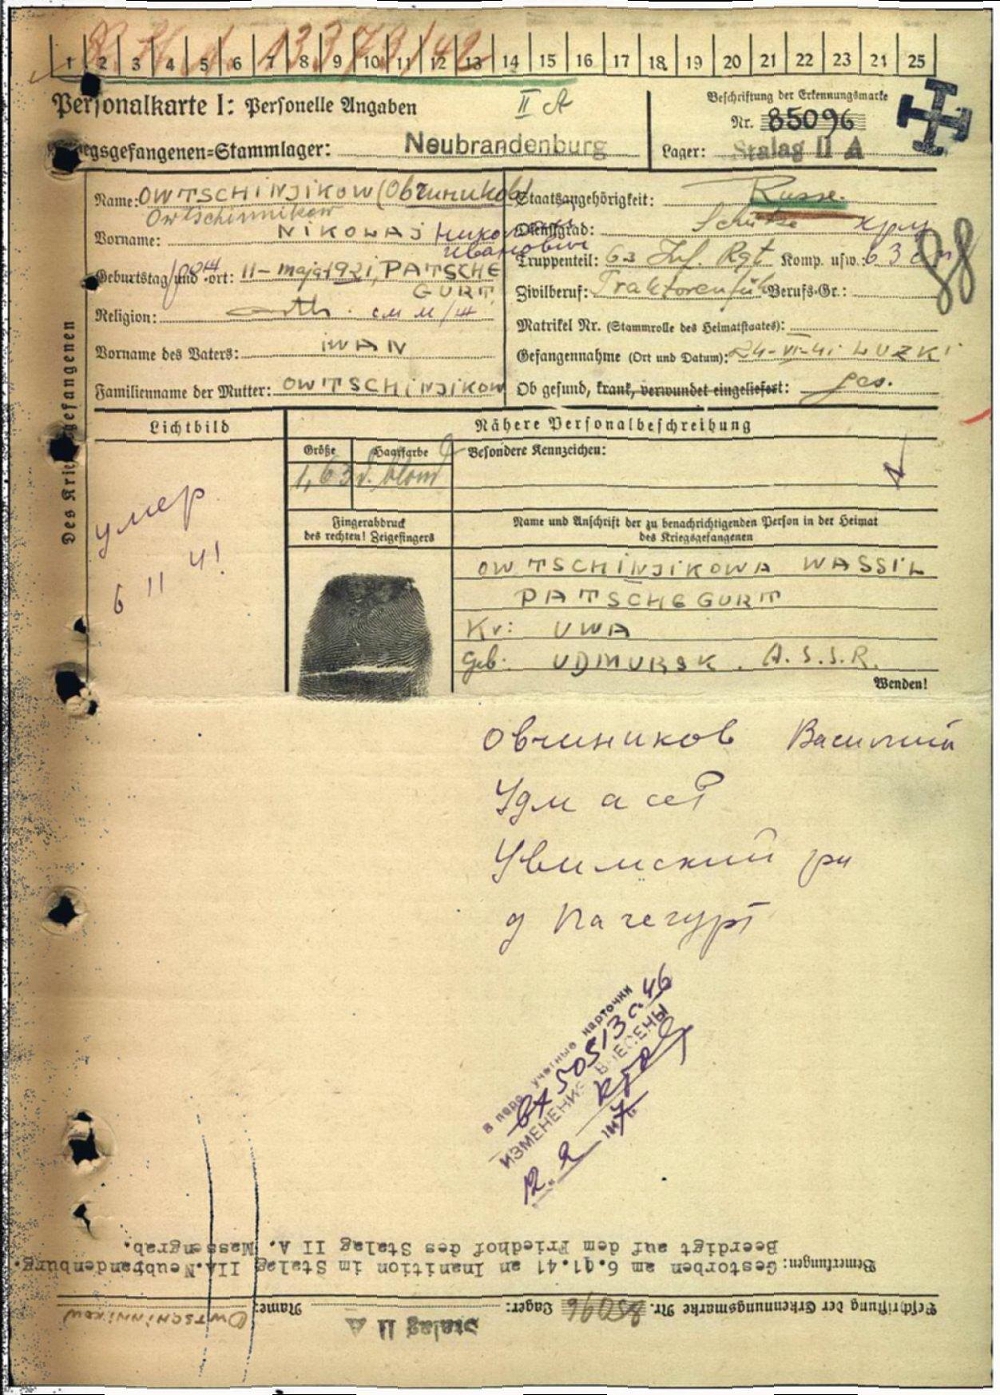 1 2 3 4 5 6 7 8 9 10 11 12 13 14 15 16 17 18 19 20 21 22 23 24 25
Personalkarte I: Personelle Angaben
II A
Beschriftung der Erkennungsmarke
Nr. 85096
Kriegsgefangenen=Stammlager: Neubrandenburg
Lager: Stalag II A
Des Kriegsgefangenen
Name: OWTSCHINJIKOW (Овчиников)
Owtschinnikow
Vorname: NIKOLAJ Николай
Иванович
Geburtstag und =ort: 11-maja 1921, PATSCHE
GURT
Religion: orth.
Vorname des Vaters: IWAN
Familienname der Mutter: OWTSCHINJIKOW
Staatsangehörigkeit: Russe
Dienstgrad: Schütze
Truppenteil: 63 Inf. Rgt. Komp. usw.: 63 сп
88
Zivilberuf: Berufs-Gr.:
Matrikel Nr. (Stammrolle des Heimatstaates):
Gefangennahme (Ort und Datum): 24-VI-41 LUZKI
Ob gesund, krank, verwundet eingeliefert: ges.
Lichtbild
умер
6 11 41
Nähere Personalbeschreibung
Größe
1,63
Haarfarbe
d. blond
Besondere Kennzeichen:
Fingerabdruck
des rechten! Zeigefingers
Name und Anschrift der zu benachrichtigenden Person in der Heimat
des Kriegsgefangenen
OWTSCHINJIKOWA WASSIL
PATSCHEGURT
Kr: UWA
Geb: UDMURSK. A.S.S.R.
Wenden!
Овчиников Василий
Удм а ссР
Увимский рн
д Пачегурт
в перс. учетные карточки
вх 50513с-46
ИЗМЕНЕНИЯ ВНЕСЕНЫ
12. 2 1947
Beschriftung der Erkennungsmarke Nr. 85096 Lager: Stalag II A Name: OWTSCHINNIKOW
Bemerkungen: Gestorben am 6.11.41 an Inanition im Stalag IIA. Neubrandenburg.
Beerdigt auf dem Friedhof des Stalag II A. Massengrab.